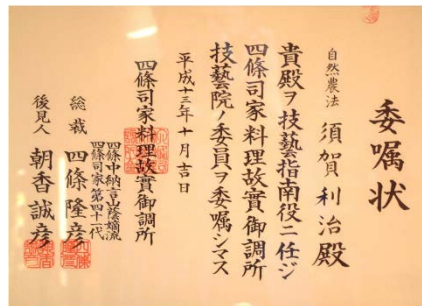 委嘱状
自然農法 須賀利治殿
貴殿ヲ技藝指南役ニ任ジ
四條司家料理故實御調所
技藝院ノ委員ヲ委嘱シマス
平成十三年十月吉日
四條司家料理故實御調所
四條中納言山蔭嫡流
四條司家第四十一代
総裁 四條隆彦
後見人 朝香誠彦